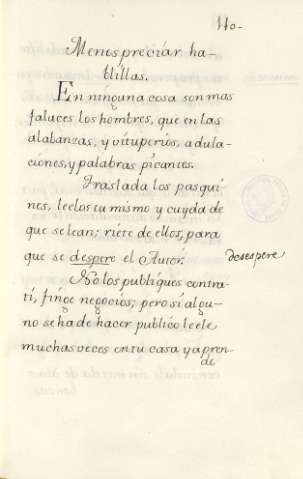 110.
Menospreciar ha-
blillas.
En ninguna cosa son mas
falaces los hombres, que en las
alabanzas, y vituperios, adula-
ciones, y palabras picantes.
Traslada los pasqui-
nes, leelos tu mismo y cuyda de
que se lean; riete de ellos, para
que se despere el Autor. desespere
No los publiques contra-
ti, finge negocios; pero si algu-
no se ha de hacer publico leele
muchas veces en tu casa y apren-
de